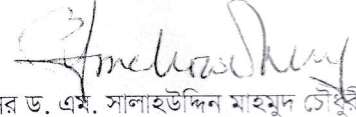 র ড. এম. সালাহউদ্দিন মাহমুদ চৌধুরী